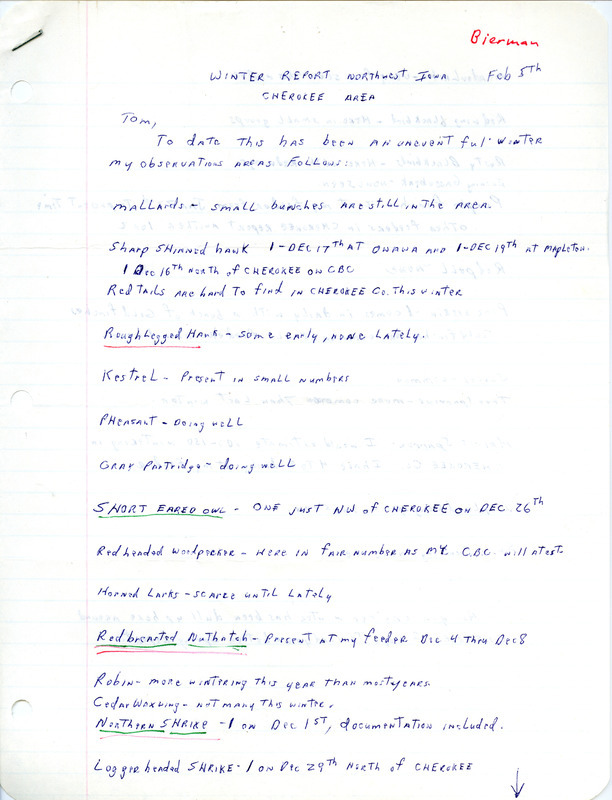 Bierman
WINTER REPORT NORTHWEST IOWA Feb 5th
CHEROKEE AREA
Tom,
To date this has been an uneventful winter
my observations areas follows:
mallards - small bunches are still in the area.
Sharp shinned hawk 1-DEC 17th AT ONAWA AND 1-DEC 19th at Mapleton.
1 Dec 16th North of CHEROKEE ON CBC
Red Tails are hard to find in CHEROKEE Co. This winter
Rough Legged Hawk - some early, none lately.
Kestrel - Present in small numbers
PHeasant - Doing well
GRAY Partridge - doing well
SHORT EARED OWL - ONE just NW of CHEROKEE ON DEC. 26th
Red headed woodpecker - Here in fair number as my C.B.C. will atest.
Horned Larks - scarce until lately
Red breasted Nuthatch - Present at my feeder Dec 4 thru Dec 8
Robin - more wintering this year than most years.
Cedar Waxwing - not many this winter.
Northern SHRIKE - 1 on Dec 1st, documentation included.
Loggerheaded SHRIKE - 1 on Dec 29th North of CHEROKEE